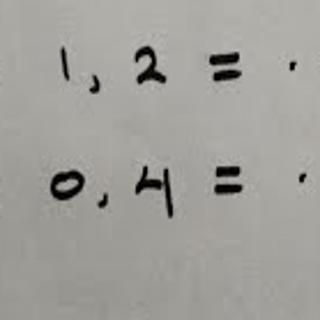 1, 2 = .
0, 4 = .